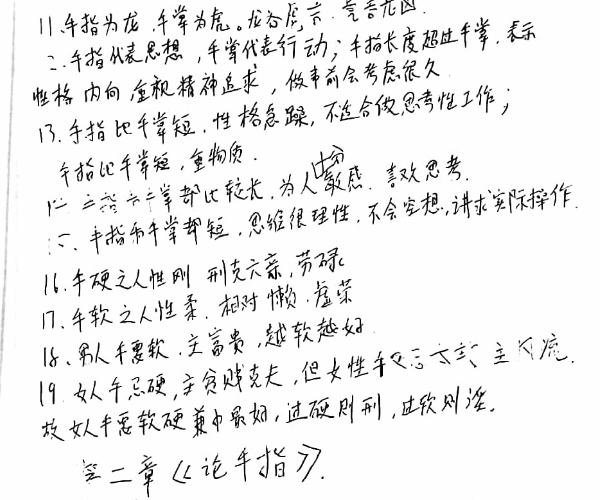 11、手指为龙，手掌为虎。龙吞虎吉，虎吞龙凶.
手指代表思想，手掌代表行动；手指长度超过手掌，表示
性格内向，重视精神追求，做事前会考虑很久
13. 手指比手掌短，性格急躁，不适合做思考性工作；
手指比手掌短，重物质.
手掌都比较长，为人十分敏感，喜欢思考.
手指和手掌都短，思维很理性，不会空想，讲求实际操作.
16、手硬之人性刚 刑克六亲，劳碌
17、手软之人性柔，相对懒，虚荣
18、男人手要软，主富贵，越软越好
19、女人手忌硬，主贫贱克夫，但女性手 主 流.
故女人手要软硬兼中最好，过硬则刑，过软则淫。
第二章《论手指》.